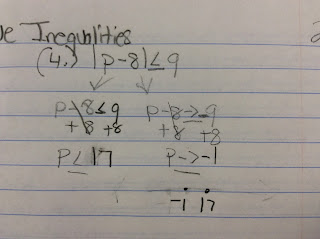 Inequalities
(4.) |p-8|≤9
p-8≤9 p-8≥-9
+8 +8 +8 +8
p≤17 p≥-1
-1 17